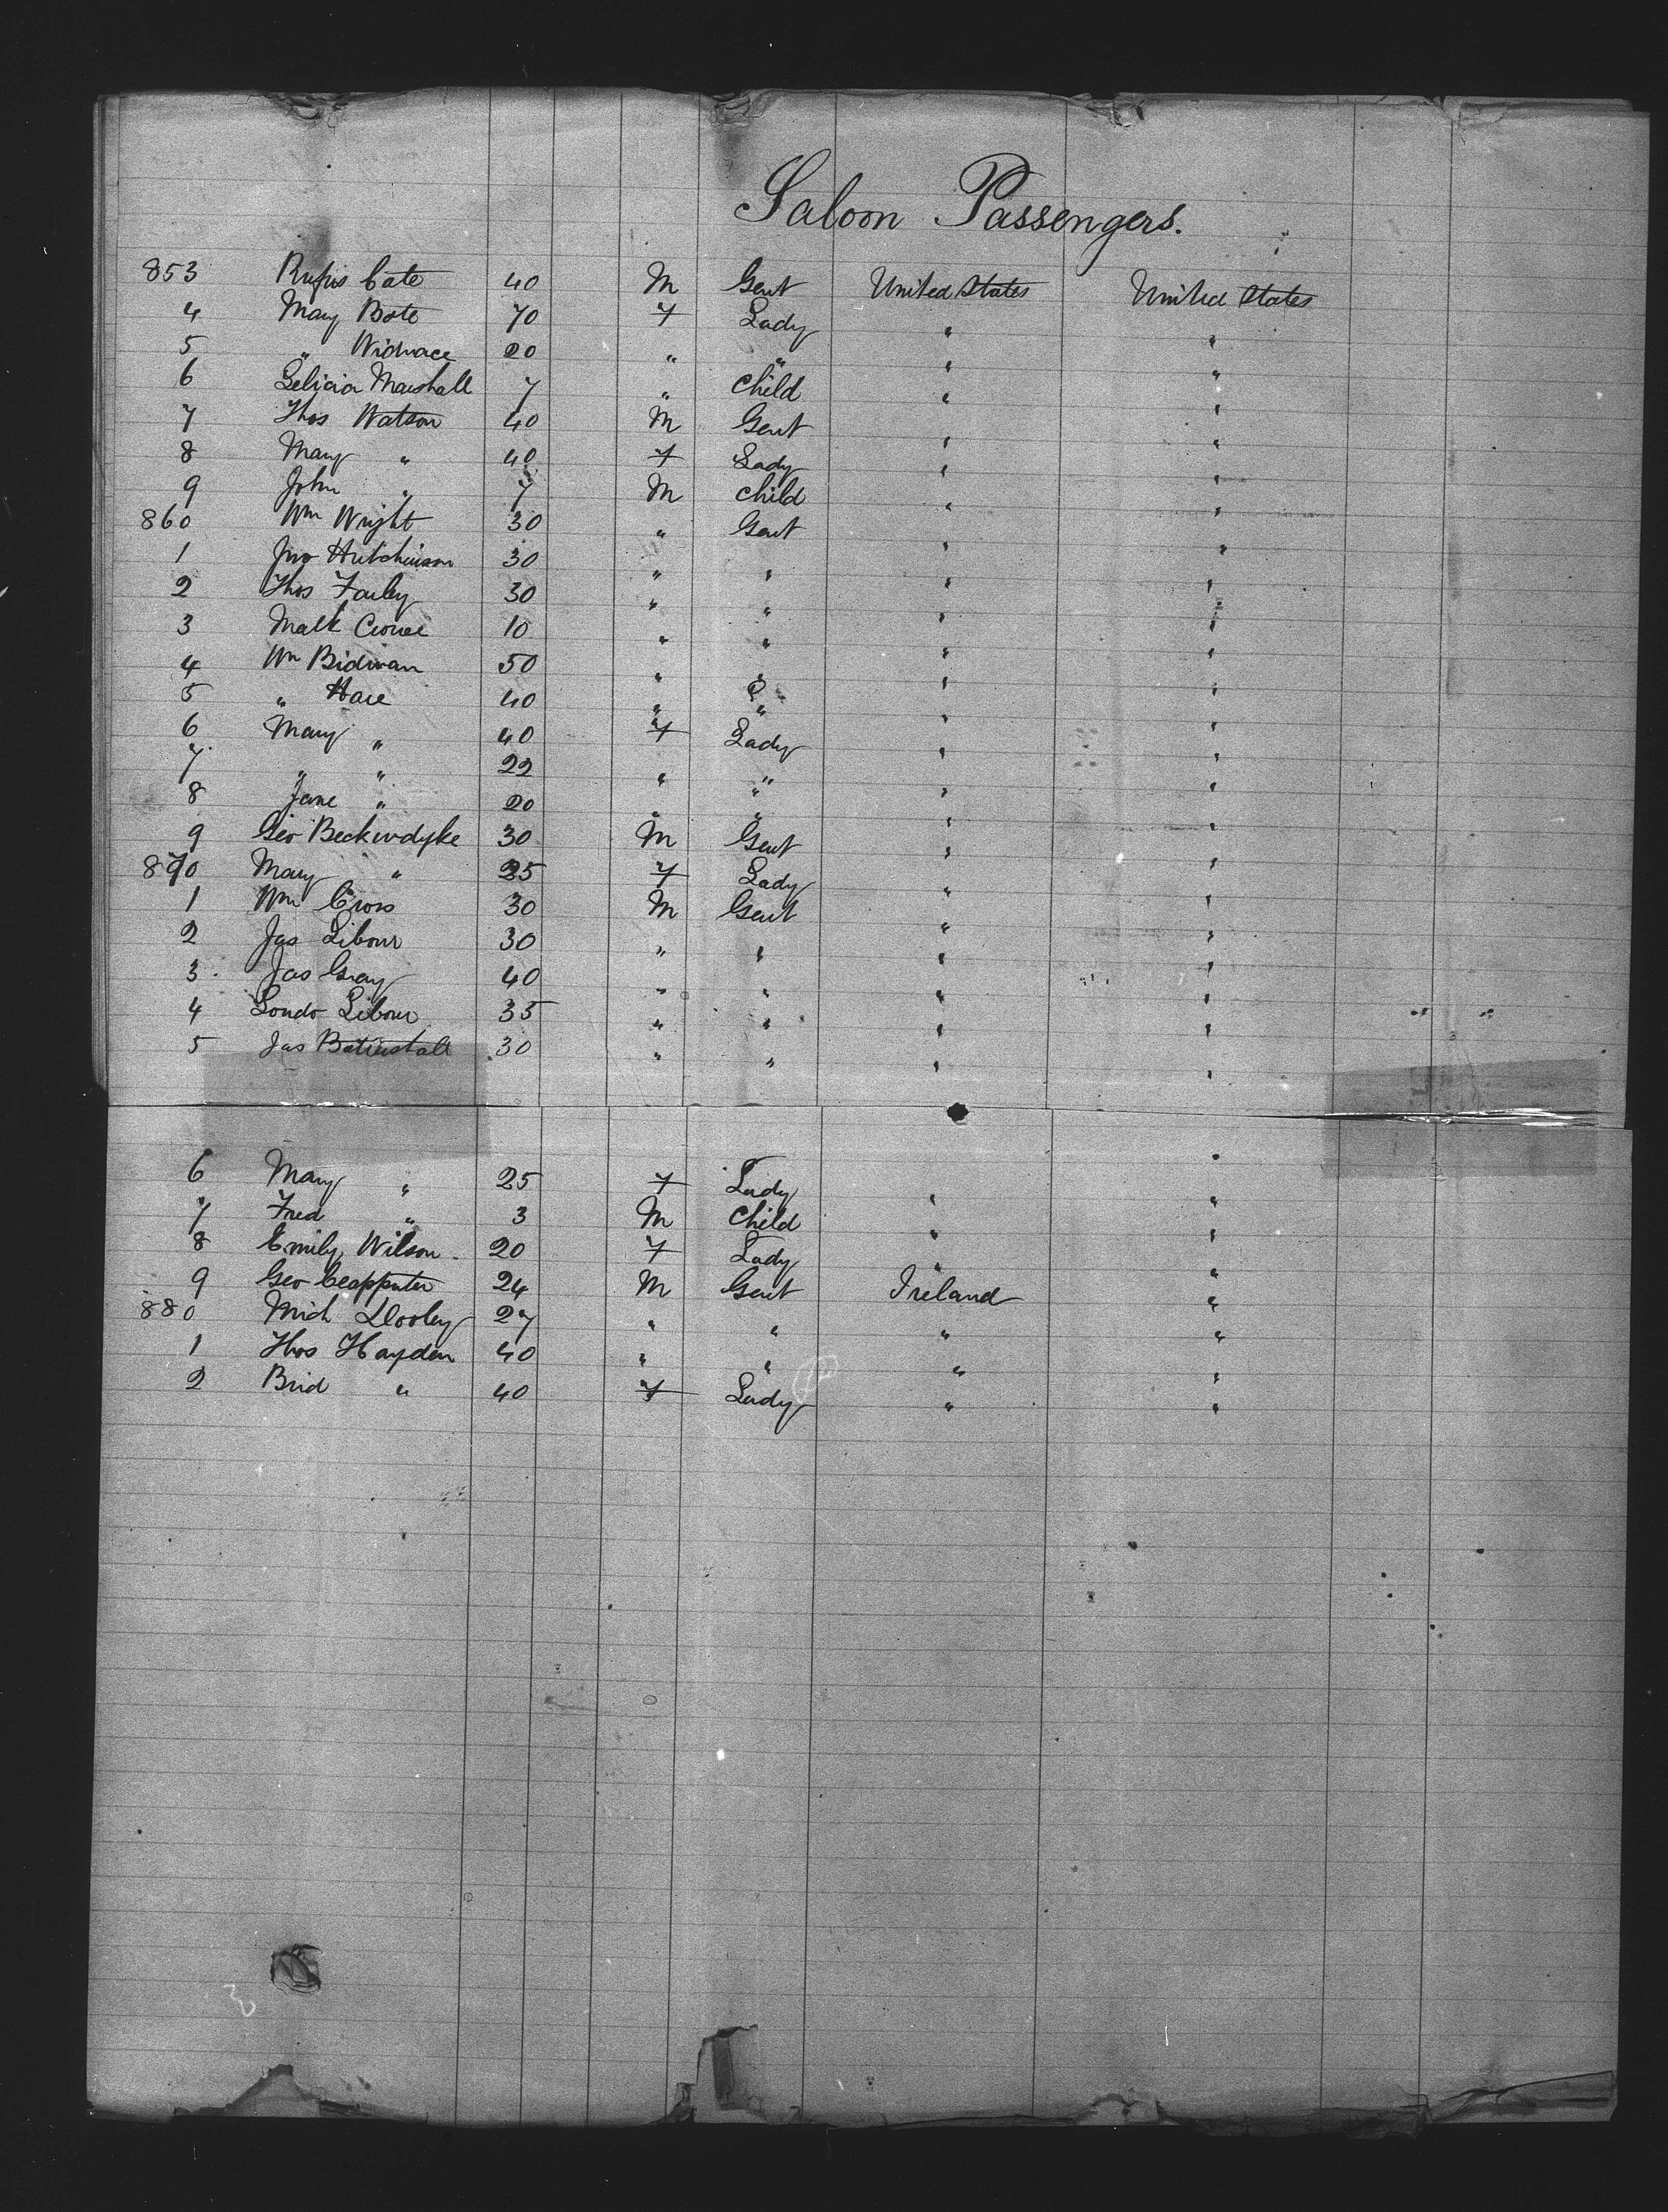 Saloon Passengers.
853 Rufus Cate 40 M Gent United States United States
4 Mary Bote 70 F Lady " "
5 " Widnace 20 " " " "
6 Marshall 7 " Child " "
7 Thos Watson 40 M Gent " "
8 Mary " 40 F Lady " "
9 John " 7 M Child " "
860 Wm Wright 30 " Gent " "
1 Jno Hutchinson 30 " " " "
2 Thos Farley 30 " " " "
3 10 " " " "
4 Wm Bidwan 50 " " " "
5 " Hare 40 " " " "
6 Mary " 40 F Lady " "
7 " " 22 " " " "
8 Jane " 20 " " " "
9 Geo Beckwdyke 30 M Gent " "
870 Mary " 25 F Lady " "
1 Wm Cross 30 M Gent " "
2 Jas Libour 30 " " " "
3 Jas Gray 40 " " " "
4 Londo Libour 35 " " " "
5 Jas 30 " " " "
6 Mary " 25 F Lady " "
7 Fred " 3 M Child " "
8 Emily Wilson 20 F Lady " "
9 Geo 24 M Gent Ireland "
880 Mich Dooley 27 " " " "
1 Thos Hayden 40 " " " "
2 Brid " 40 F Lady " "